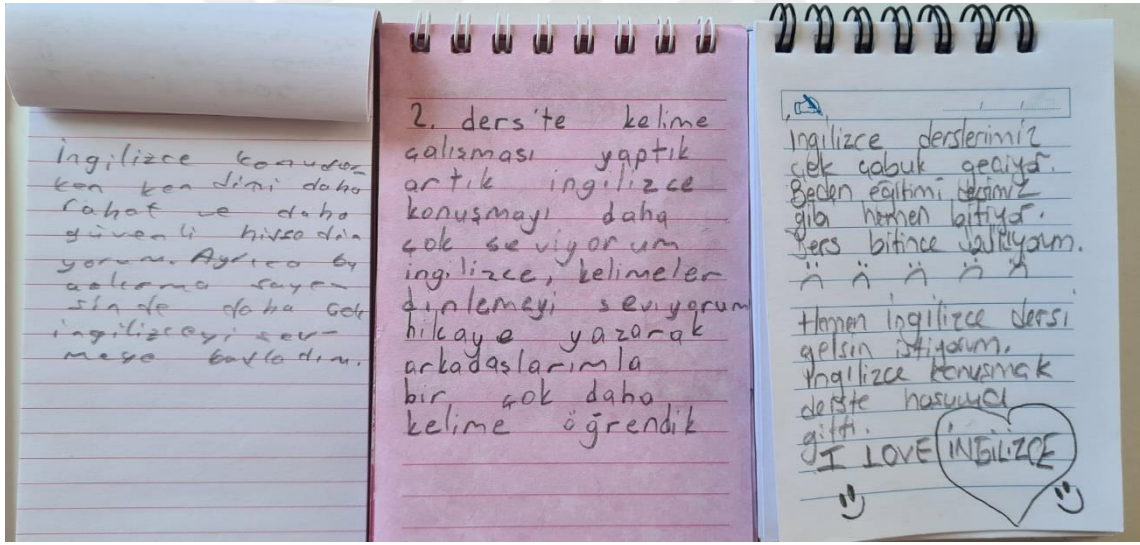 ingilizce konuşur-
ken kendimi daha
rahat ve daha
güvenli hissedin
yorum. Ayrıca bu
sayen-
sinde daha çok
ingilizceyi sev-
meye başladım.
2. ders'te kelime
çalışması yaptık
artık ingilizce
konuşmayı daha
çok seviyorum
ingilizce, kelimeler
dinlemeyi seviyorum
hikaye yazarak
arkadaşlarımla
bir çok daha
kelime öğrendik
İngilizce derslerimiz
çok çabuk geçiyor.
Beden eğitimi dersimiz
gibi hemen bitiyor.
Ders bitince üzülüyorum.
Hemen İngilizce dersi
gelsin istiyorum.
İngilizce konuşmak
derste hoşuma
gitti.
I LOVE İNGİLİZCE